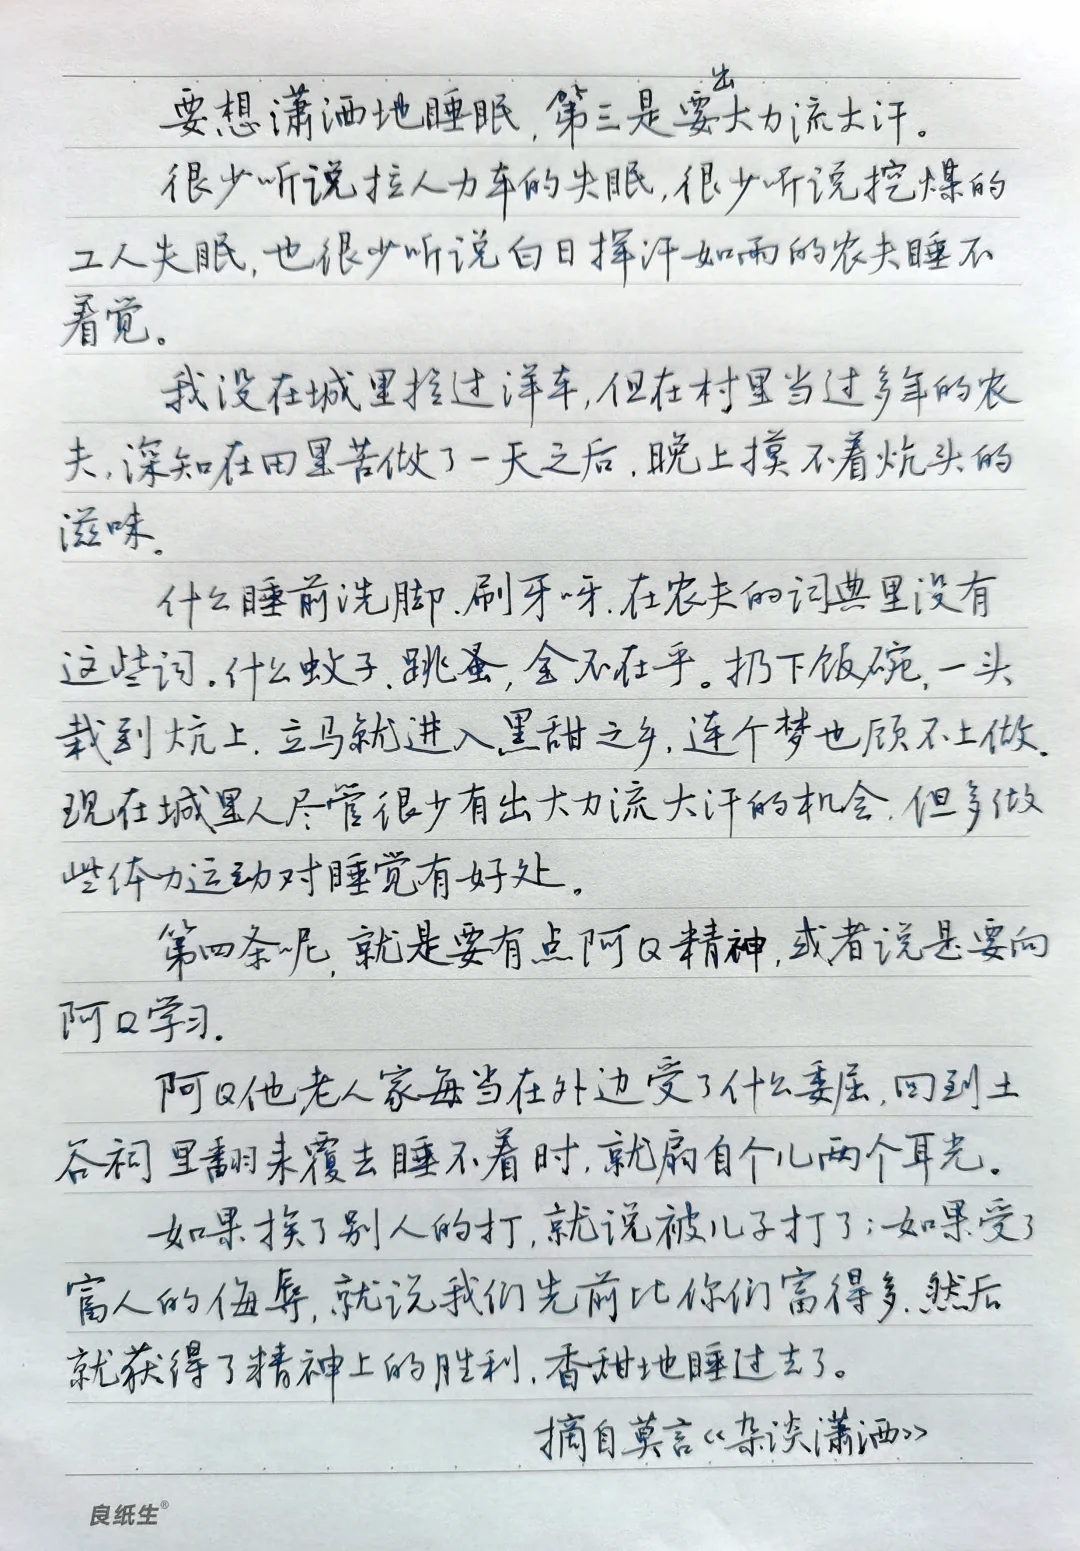 要想潇洒地睡眠，第三是要出大力流大汗。
很少听说拉人力车的失眠，很少听说挖煤的
工人失眠，也很少听说白日挥汗如雨的农夫睡不
着觉。
我没在城里拉过洋车，但在村里当过多年的农
夫，深知在田里苦做了一天之后，晚上摸不着炕头的
滋味。
什么睡前洗脚、刷牙呀，在农夫的词典里没有
这些词。什么蚊子、跳蚤，全不在乎。扔下饭碗，一头
栽到炕上，立马就进入黑甜之乡，连个梦也顾不上做。
现在城里人尽管很少有出大力流大汗的机会，但多做
些体力运动对睡觉有好处。
第四条呢，就是要有点阿Q精神，或者说是要向
阿Q学习。
阿Q他老人家每当在外边受了什么委屈，回到土
谷祠里翻来覆去睡不着时，就扇自个儿两个耳光。
如果挨了别人的打，就说被儿子打了；如果受了
富人的侮辱，就说我们先前比你们富得多，然后
就获得了精神上的胜利，香甜地睡过去了。
摘自莫言《杂谈潇洒》
良纸生®